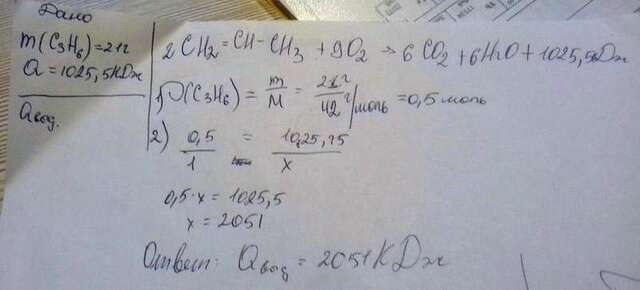 Дано
m(C₃H₆)=21г
Q=1025,5КДж
Qвыд.
2CH₂=CH-CH₃+9O₂→6CO₂+6H₂O+1025,5Дж
1) ν(C₃H₆)=m/M=21г/42г/моль=0,5моль
2) 0,5/1=10,25,75/x
0,5·x=1025,5
x=2051
Ответ: Qвыд=2051КДж